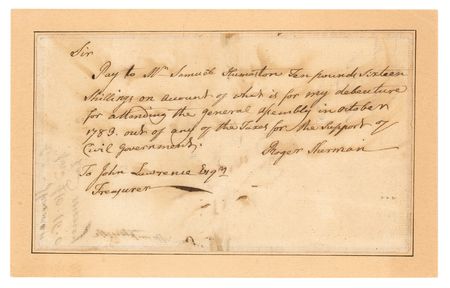 Sir
Pay to Mr Samuel Ten pounds Sixteen
Shillings on account of what is for my debenture
for attending the general assembly in October
1783. out of any of the Taxes for the Support of
Civil Government.
Roger Sherman
To John Lawrence Esqr
Treasurer